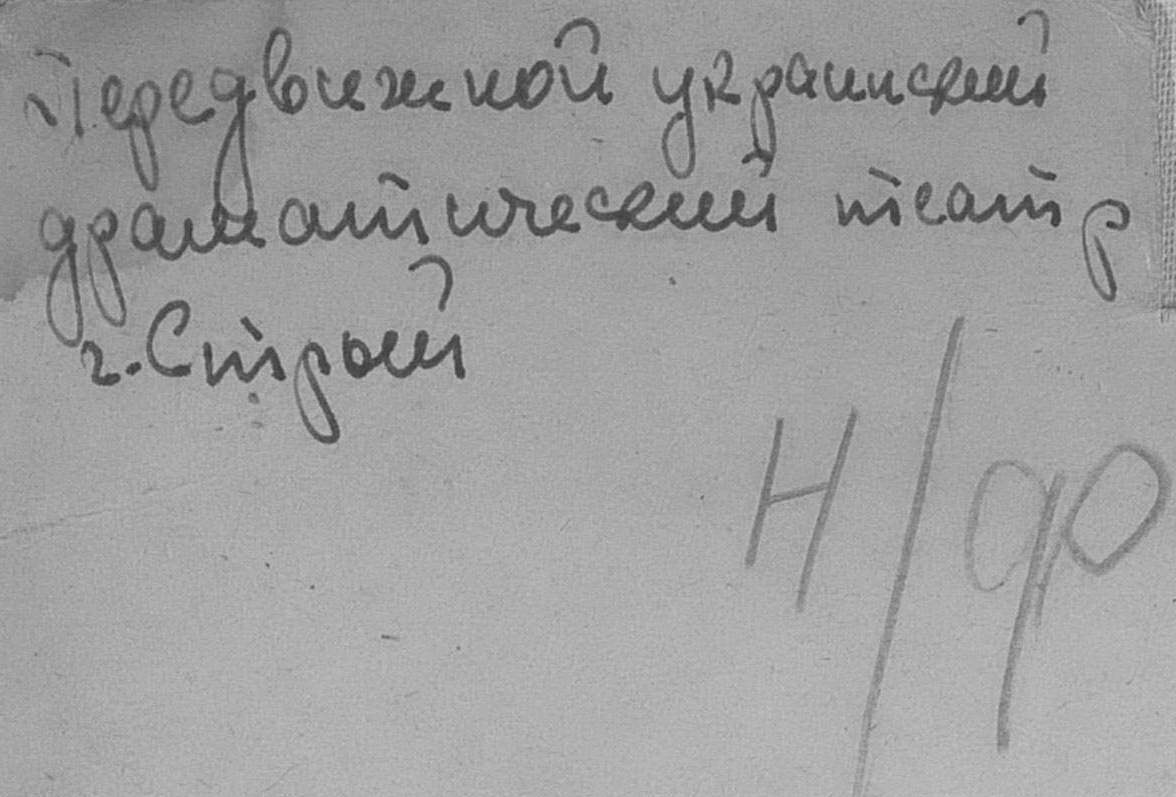 Передвижной украинский
драматический театр
г. Стрый
Н/фо